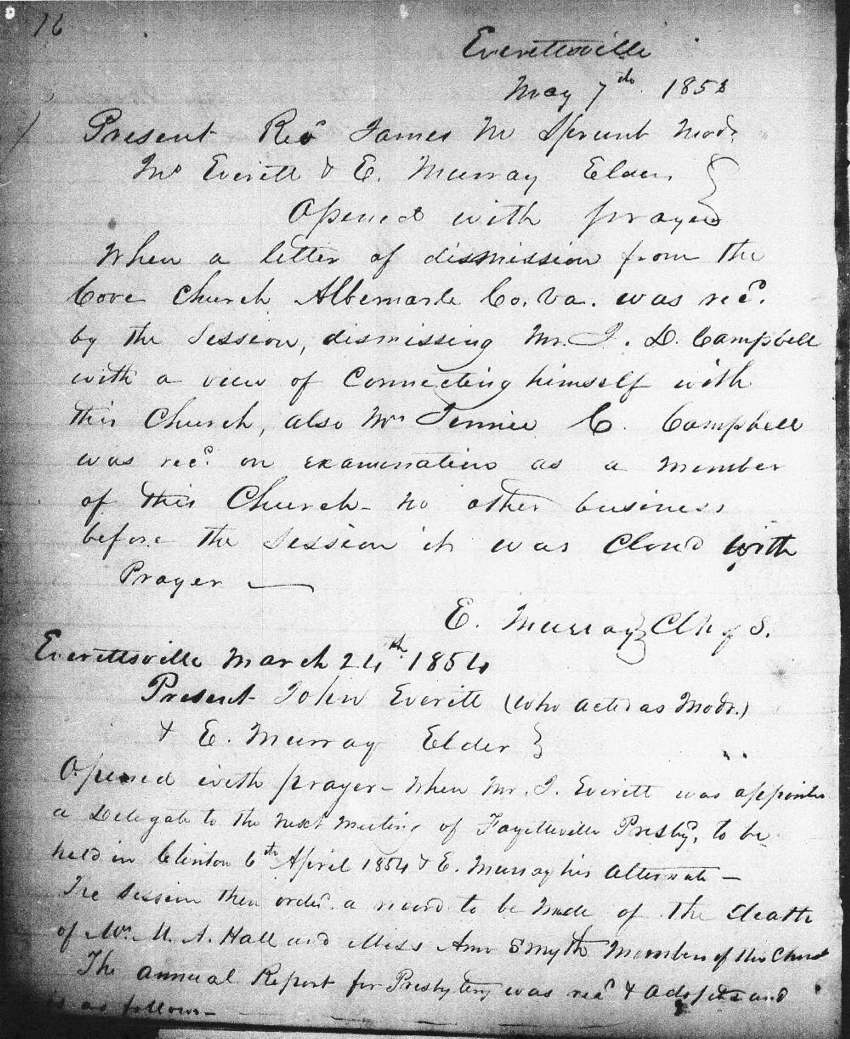 16
Everettsville
May 7th 185
Present Rev James M Sprunt Modr
Mr Everitt & E. Murray Elders
Opened with prayer
When a letter of dismission from the
Cove Church Albemarle Co. Va. was recd.
by the Session, dismissing Mr. J. D. Campbell
with a view of Connecting himself with
this Church, also Mrs Jennie C. Campbell
was recd on examination as a member
of this Church - no other business
before the Session it was Closed with
Prayer —
E. Murray Clk of S.
Everettsville March 24th 1854
Present John Everitt (who acted as Modr.)
& E. Murray Elder
Opened with prayer - When Mr. J. Everitt was appointed
a Delegate to the next meeting of Fayetteville Presby, to be
held in Clinton 6th April 1854 & E. Murray his Alternate -
The Session then orderd. a record to be made of the death
of Mrs. M. A. Hall and Miss Ann Smyth Members of this Church
The annual Report for Presbytery was recd & adopted and
is as follows -